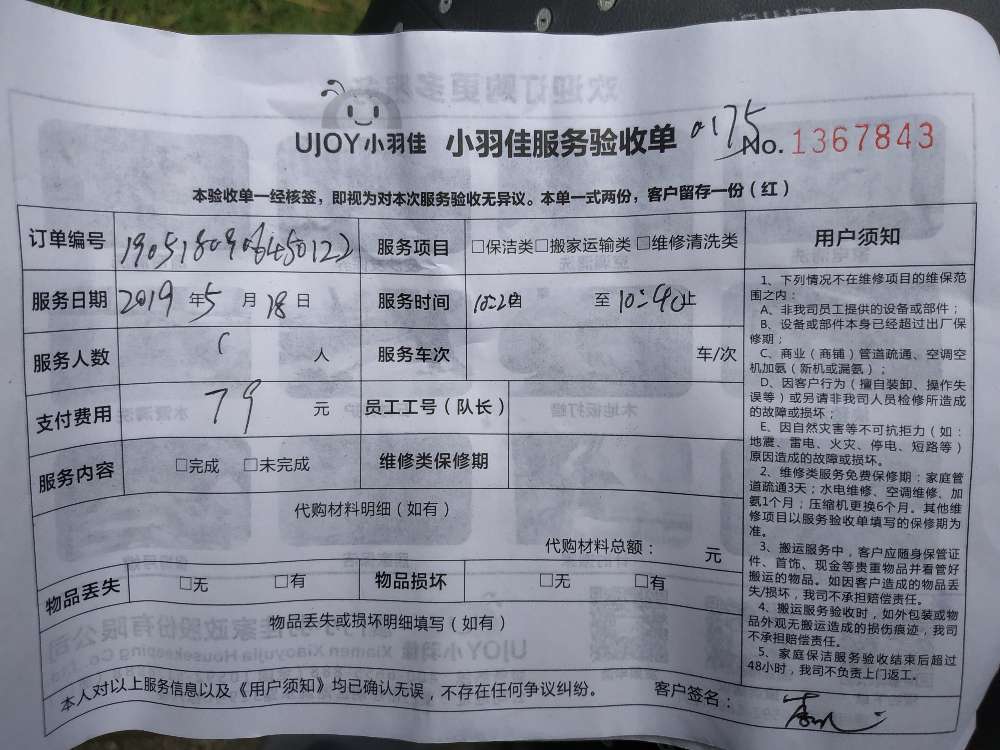 UJOY小羽佳 小羽佳服务验收单 0175 No. 1367843
本验收单一经核签，即视为对本次服务验收无异议。本单一式两份，客户留存一份（红）
订单编号 服务项目 □保洁类□搬家运输类□维修清洗类
服务日期 2019 年 5 月 18 日 服务时间 至 10:40止
服务人数 人 服务车次 车/次
支付费用 79 元 员工工号（队长）
服务内容 □完成 □未完成 维修类保修期
代购材料明细（如有）
代购材料总额： 元
物品丢失 □无 □有 物品损坏 □无 □有
物品丢失或损坏明细填写（如有）
本人对以上服务信息以及《用户须知》均已确认无误，不存在任何争议纠纷。 客户签名：
用户须知
1、下列情况不在维修项目的维保范
围之内：
A、非我司员工提供的设备或部件；
B、设备或部件本身已经超过出厂保
修期；
C、商业（商铺）管道疏通、空调空
机加氨（新机或漏氨）；
D、因客户行为（擅自装卸、操作失
误等）或另请非我司人员检修所造成
的故障或损坏；
E、因自然灾害等不可抗拒力（如：
地震、雷电、火灾、停电、短路等）
原因造成的故障或损坏。
2、维修类服务免费保修期：家庭管
道疏通3天；水电维修、空调维修、加
氨1个月；压缩机更换6个月。其他维
修项目以服务验收单填写的保修期为
准。
3、搬运服务中，客户应随身保管证
件、首饰、现金等贵重物品并看管好
搬运的物品。如因客户造成的物品丢
失/损坏，我司不承担赔偿责任。
4、搬运服务验收时，如外包装或物
品外观无搬运造成的损伤痕迹，我司
不承担赔偿责任。
5、家庭保洁服务验收结束后超过
48小时，我司不负责上门返工。